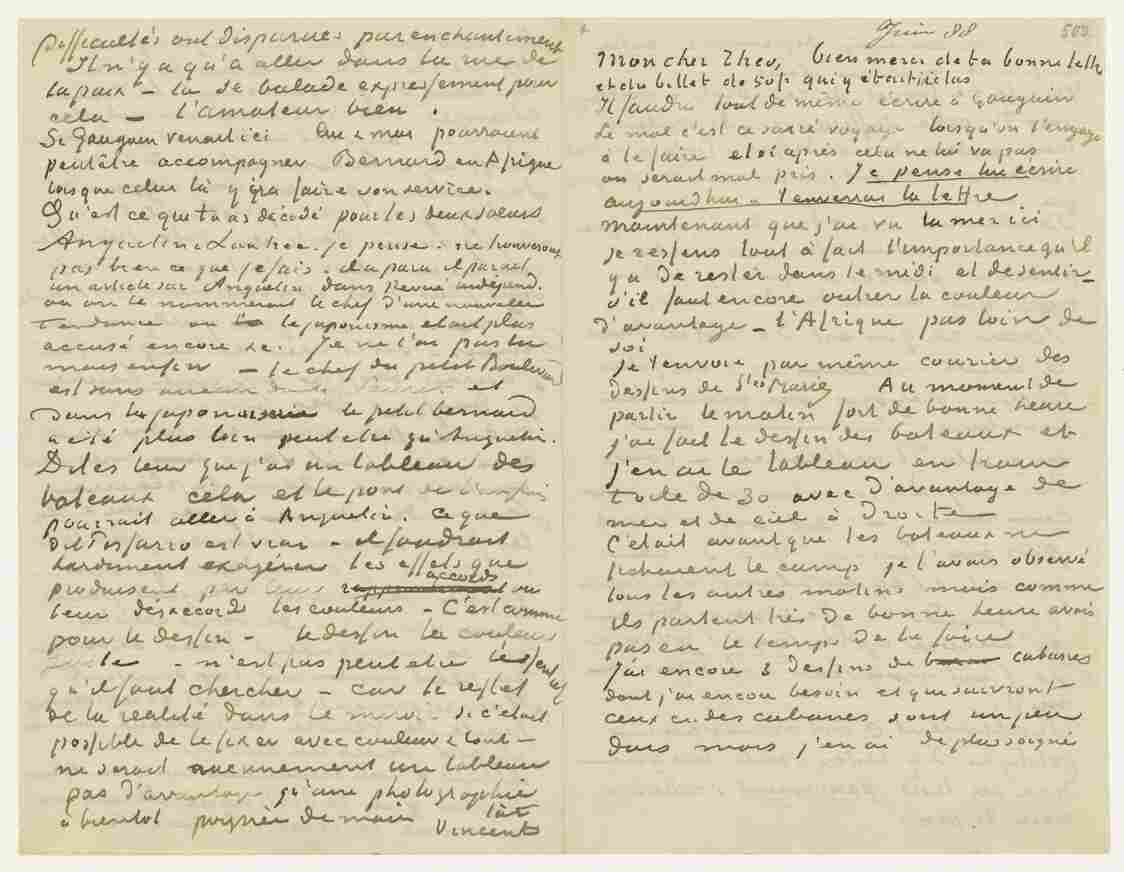 difficultés ont disparues par enchantement
Il n'y a qu'à aller dans la rue de
la paix – là se balade expressement pour
cela – l'amateur bien.
Si Gauguin venait ici lui & moi pourraient
peutêtre accompagner Bernard en Afrique
lorsque celui là y ira faire son service.
Qu'est ce que tu as décidé pour les deux soeurs
Anquetin & Lautrec. je pense. ne trouverons
pas bien ce que je fais. il a paru il parait
un article sur Anquetin dans Revue independ.
où on le nommerait le chef d'une nouvelle
tendance où le japonisme etait plus
accusé encore &c. Je ne l'ai pas lu
mais enfin – le chef du petit Boulevard
est sans aucun doute Seurat et
dans la japonaiserie le petit bernard
a été plus loin peut etre qu'Anquetin.
Dites leur que j'ai un tableau des
bateaux cela et le pont de l'anglois
pourrait aller à Anquetin. Ce que
dit Pissarro est vrai – il faudrait
hardiment exagérer les effets que
produisent par leurs accords ou
leurs désaccords les couleurs – C'est comme
pour le dessin – le dessin la couleur
juste – n'est pas peut etre l'essentiel
qu'il faut chercher – car le reflet
de la realité dans le miroir si c'était
possible de le fixer avec couleur & tout –
ne serait aucunement un tableau
pas d'avantage qu'une photographie
à bientot poignée de main t à t
Vincent
Juin 88 500
Mon cher Theo, bien merci de ta bonne lettre
et du billet de 50 fr qui y était inclus
Il faudra tout de même écrire à Gauguin
Le mal c'est ce sacré voyage lorsqu'on l'engage
à le faire et si après cela ne lui va pas
on serait mal pris. Je pense lui écrire
aujourd'hui & t'enverrai la lettre
maintenant que j'ai vu la mer ici
je ressens tout à fait l'importance qu'il
y a de rester dans le midi et de sentir –
s'il faut encore outrer la couleur
d'avantage – l'Afrique pas loin de
soi
je t'envoie par même courrier des
dessins de Stes Maries Au moment de
partir le matin fort de bonne heure
j'ai fait le dessin des bateaux et
j'en ai le tableau en train
toile de 30 avec d'avantage de
mer et de ciel à droite
C'était avant que les bateaux ne
fichassent le camp je l'avais observé
tous les autres matins mais comme
ils partent tres de bonne heure avais
pas eu le temps de la faire
J'ai encore 3 dessins de cabanes
dont j'ai encore besoin et qui suivront
ceux ci des cabanes sont un peu
durs mais j'en ai de plus soignés